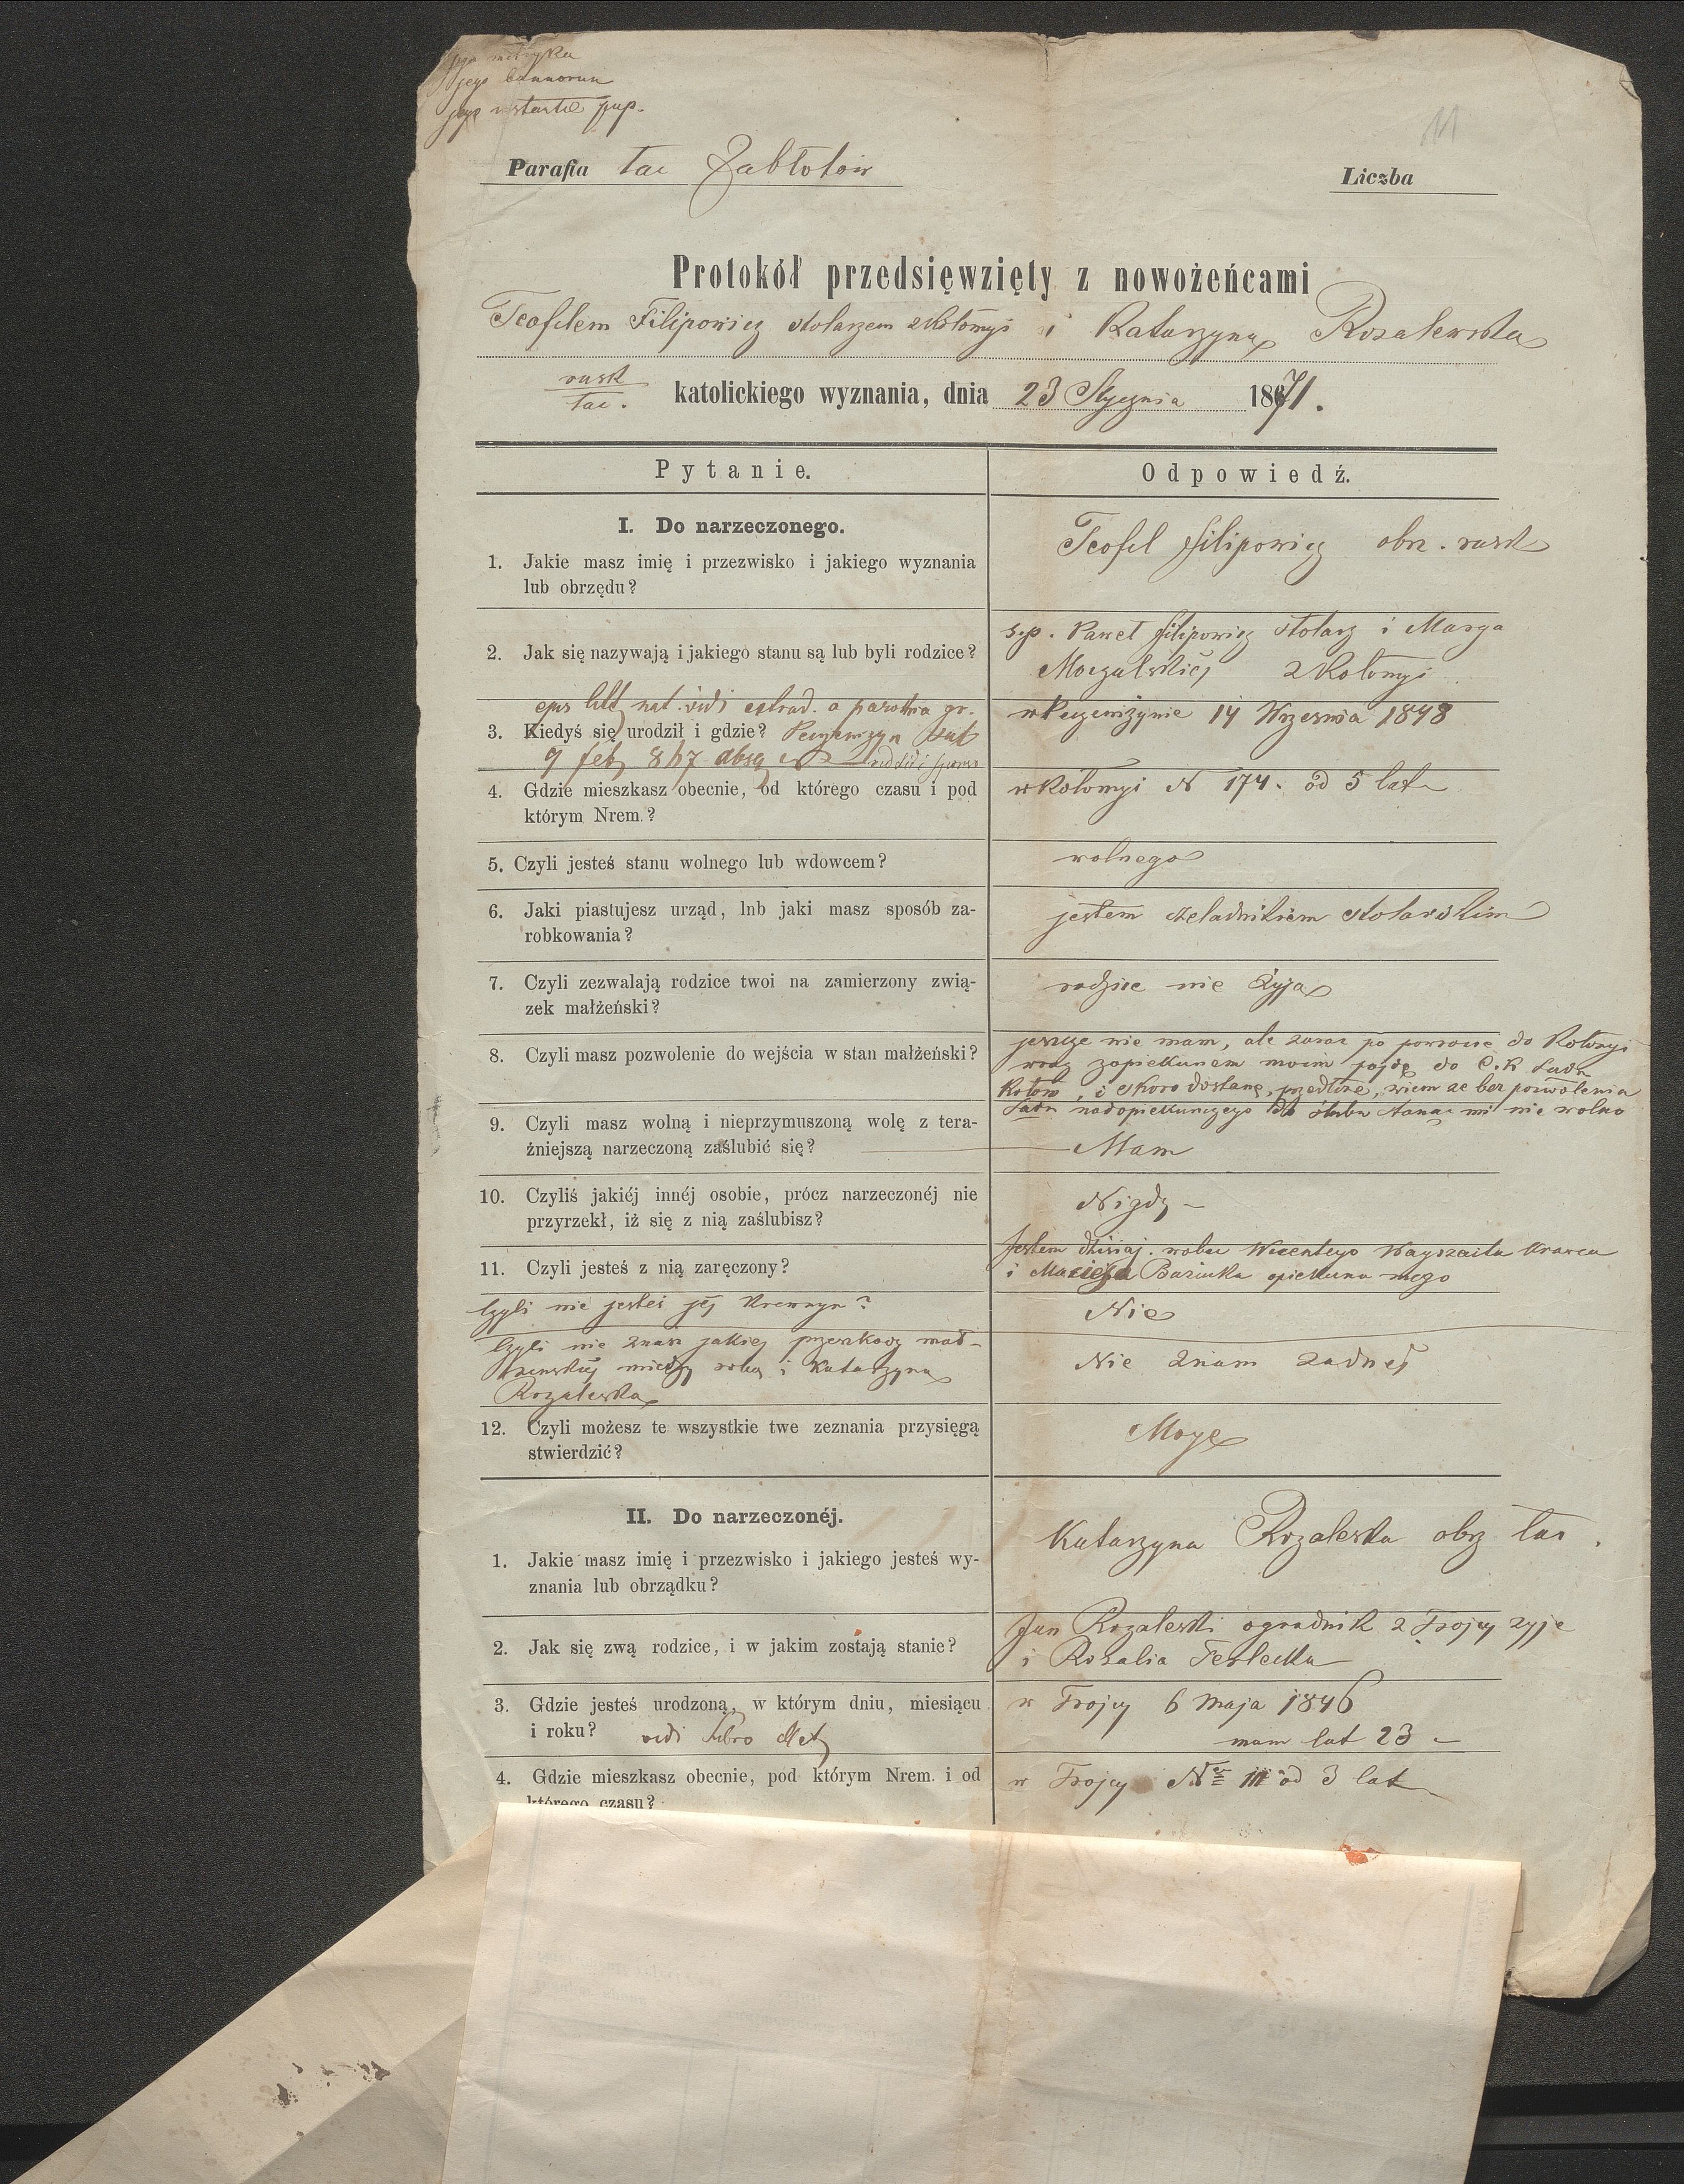 jego metryka
jego bannorum
jego
Parafia łac Zabłotow
Liczba
11
Protokół przedsięwzięty z nowożeńcami
Teofilem Filipowicz stolarzem z Kołomyi i Katarzyną Rozalewską
rusk
łac.
katolickiego wyznania, dnia 23 Stycznia 1871.
Pytanie.
Odpowiedź.
I. Do narzeczonego.
1. Jakie masz imię i przezwisko i jakiego wyznania
lub obrzędu?
Teofil Filipowicz obrz. rusk
2. Jak się nazywają i jakiego stanu są lub byli rodzice?
s.p. Paweł Filipowicz stolarz i Marya
z Kołomyi
ejus nat. vidi extrad. a parochia gr.
3. Kiedyś się urodził i gdzie?
9 feb 867
w Peczeniżynie 14 Września 1848
4. Gdzie mieszkasz obecnie, od którego czasu i pod
którym Nrem.?
w Kołomyi N 174. od 5 lat
5. Czyli jesteś stanu wolnego lub wdowcem?
wolnego
6. Jaki piastujesz urząd, lnb jaki masz sposób za-
robkowania?
jestem czeladnikiem stolarskim
7. Czyli zezwalają rodzice twoi na zamierzony zwią-
zek małżeński?
rodzice nie żyją
8. Czyli masz pozwolenie do wejścia w stan małżeński?
jeszcze nie mam, ale zaraz po powrocie do Kołomyi
wraz z opiekunem moim pojdę do C.K Sadu
Kołom, i skoro dostanę, przedłożę, wiem ze bez pozwolenia
Sadu nadopiekunczego do slubu stanac mi nie wolno
9. Czyli masz wolną i nieprzymuszoną wolę z tera-
źniejszą narzeczoną zaślubić się?
Mam
10. Czyliś jakiéj innéj osobie, prócz narzeczonéj nie
przyrzekł, iż się z nią zaślubisz?
Nigdy
11. Czyli jesteś z nią zaręczony?
Jestem dzisiaj. wobec Wicentego krawca
i Macieja opiekuna mego
Czyli nie jesteś jej krewnym?
Nie
Czyli nie znasz jakiej przeszkody mał-
żenskiej miedzy sobą i Katarzyną
Rozalewską
Nie znam zadnej
12. Czyli możesz te wszystkie twe zeznania przysięgą
stwierdzić?
Mogę
II. Do narzeczonéj.
1. Jakie masz imię i przezwisko i jakiego jesteś wy-
znania lub obrządku?
Katarzyna Rozalewska obrz łac.
2. Jak się zwą rodzice, i w jakim zostają stanie?
Jan Rozalewski ogrodnik z Trojcy zyje
i Rozalia Terlecka
3. Gdzie jesteś urodzoną, w którym dniu, miesiącu
i roku? vidi libro Metr
w Trojcy 6 Maja 1846
mam lat 23
4. Gdzie mieszkasz obecnie, pod którym Nrem. i od
którego czasu?
w Trojcy Nro od 3 lat